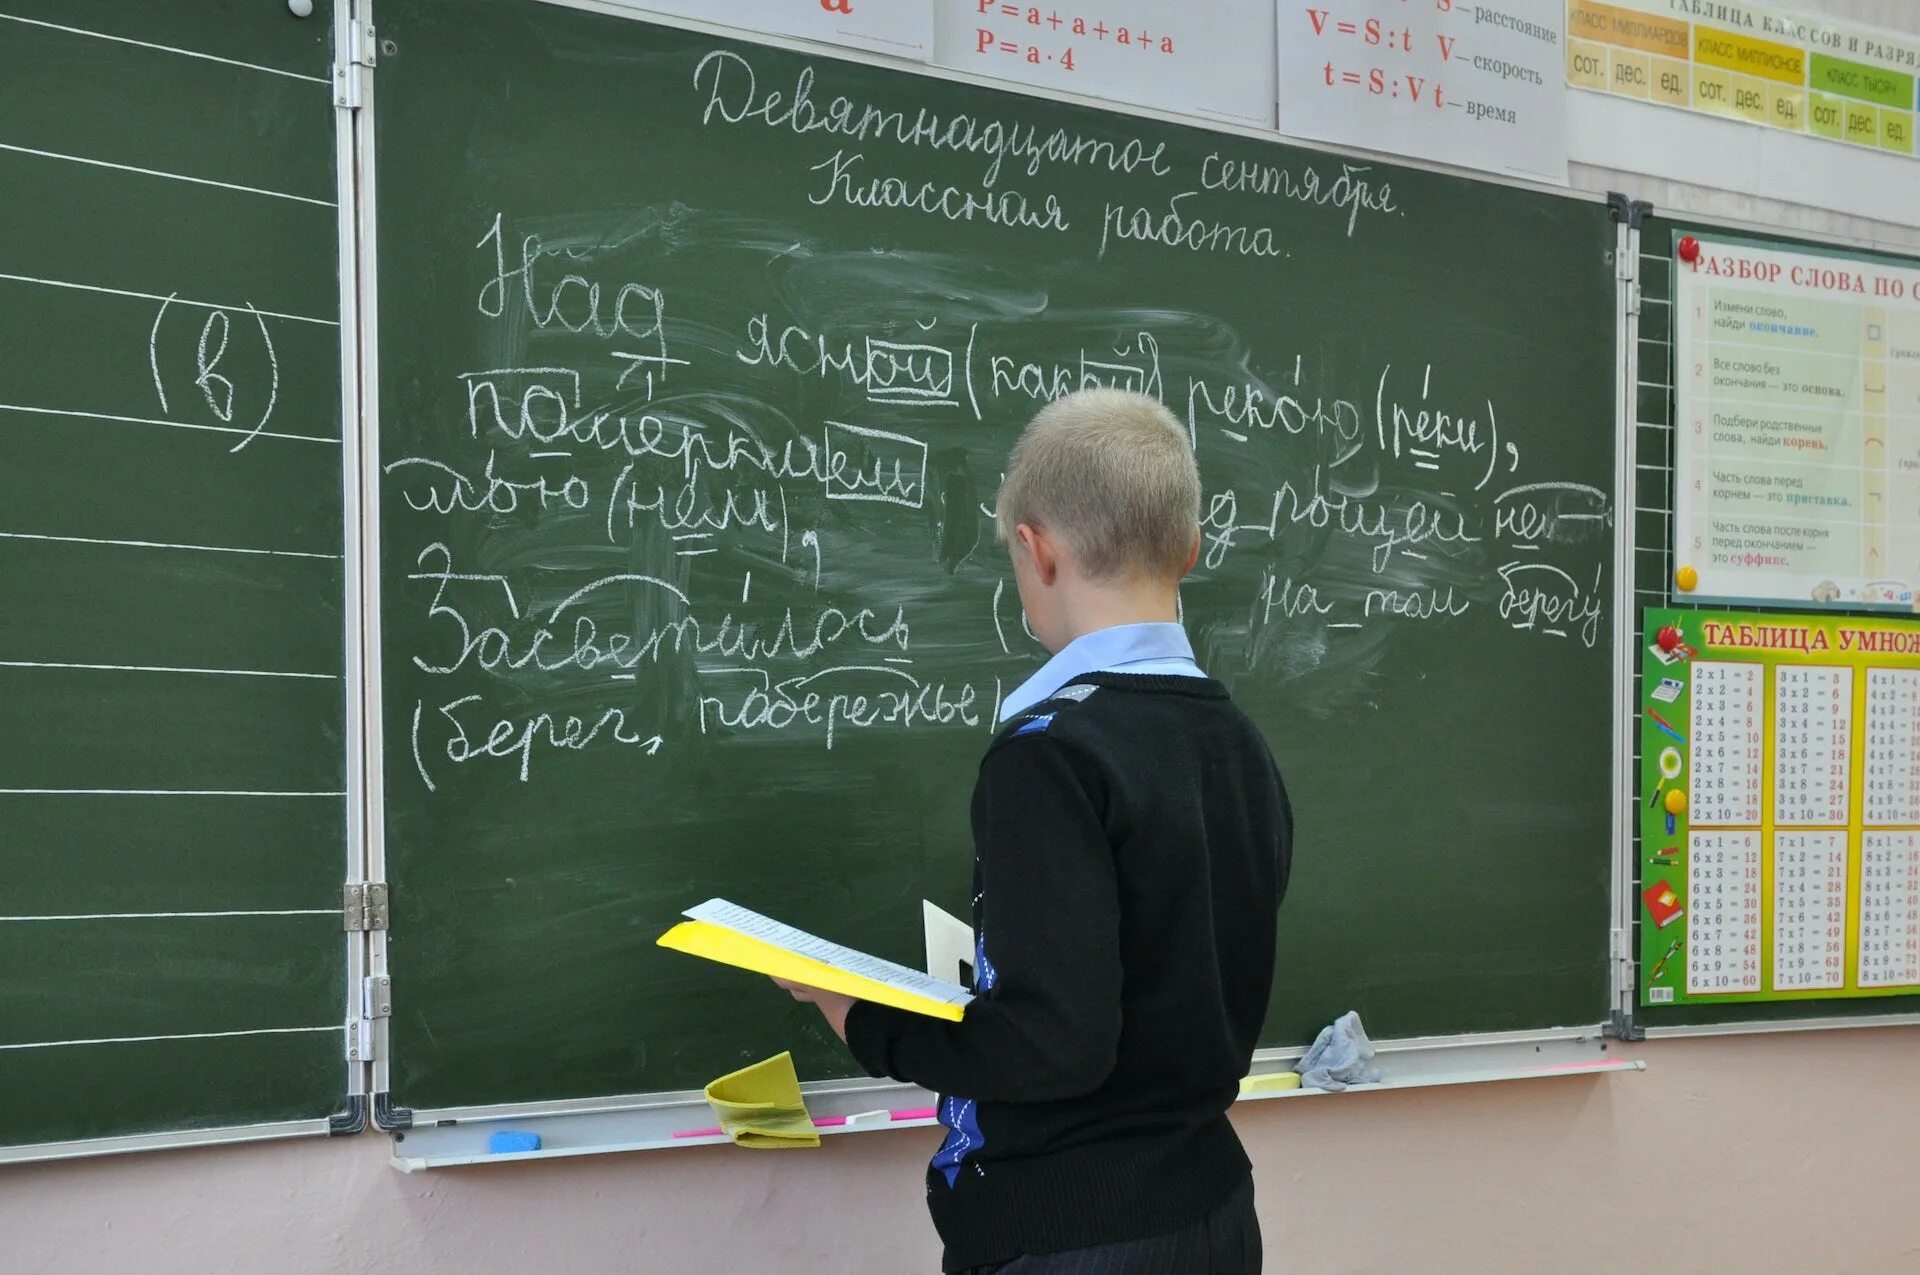 а
P = a + a + a + a
P = a · 4
S — расстояние
V = S : t V — скорость
t = S : V t — время
ТАБЛИЦА КЛАССОВ И РАЗРЯ
КЛАСС МИЛЛИАРДОВ КЛАСС МИЛЛИОНОВ КЛАСС ТЫСЯЧ
сот. дес. ед. сот. дес. ед. сот. дес. ед.
Девятнадцатое сентября.
Классная работа.
(в)
Над ясной (какой) рекою (реки),
померкшем
тьмою (нем), д рощей
Засветилось на том берегу
(берег, побережье)
РАЗБОР СЛОВА ПО С
1 Измени слово,
найди окончание.
2 Все слово без
окончания — это основа.
3 Подбери родственные
слова, найди корень.
4 Часть слова перед
корнем — это приставка.
5 Часть слова после корня
перед окончанием —
это суффикс.
ТАБЛИЦА УМНОЖ
2 x 1 = 2 3 x 1 = 3 4 x 1 = 4
2 x 2 = 4 3 x 2 = 6 4 x 2 = 8
2 x 3 = 6 3 x 3 = 9 4 x 3 =
2 x 4 = 8 3 x 4 = 12 4 x 4 =
2 x 5 = 10 3 x 5 = 15 4 x 5 =
2 x 6 = 12 3 x 6 = 18 4 x 6 =
2 x 7 = 14 3 x 7 = 21 4 x 7 =
2 x 8 = 16 3 x 8 = 24 4 x 8 =
2 x 9 = 18 3 x 9 = 27 4 x 9 =
2 x 10 = 20 3 x 10 = 30 4 x 10 =
6 x 1 = 6 7 x 1 = 7 8 x 1 = 8
6 x 2 = 12 7 x 2 = 14 8 x 2 = 16
6 x 3 = 18 7 x 3 = 21 8 x 3 = 24
6 x 4 = 24 7 x 4 = 28 8 x 4 = 32
6 x 5 = 30 7 x 5 = 35 8 x 5 = 40
6 x 6 = 36 7 x 6 = 42 8 x 6 = 48
6 x 7 = 42 7 x 7 = 49 8 x 7 = 56
6 x 8 = 48 7 x 8 = 56 8 x 8 = 64
6 x 9 = 54 7 x 9 = 63 8 x 9 = 72
6 x 10 = 60 7 x 10 = 70 8 x 10 = 80